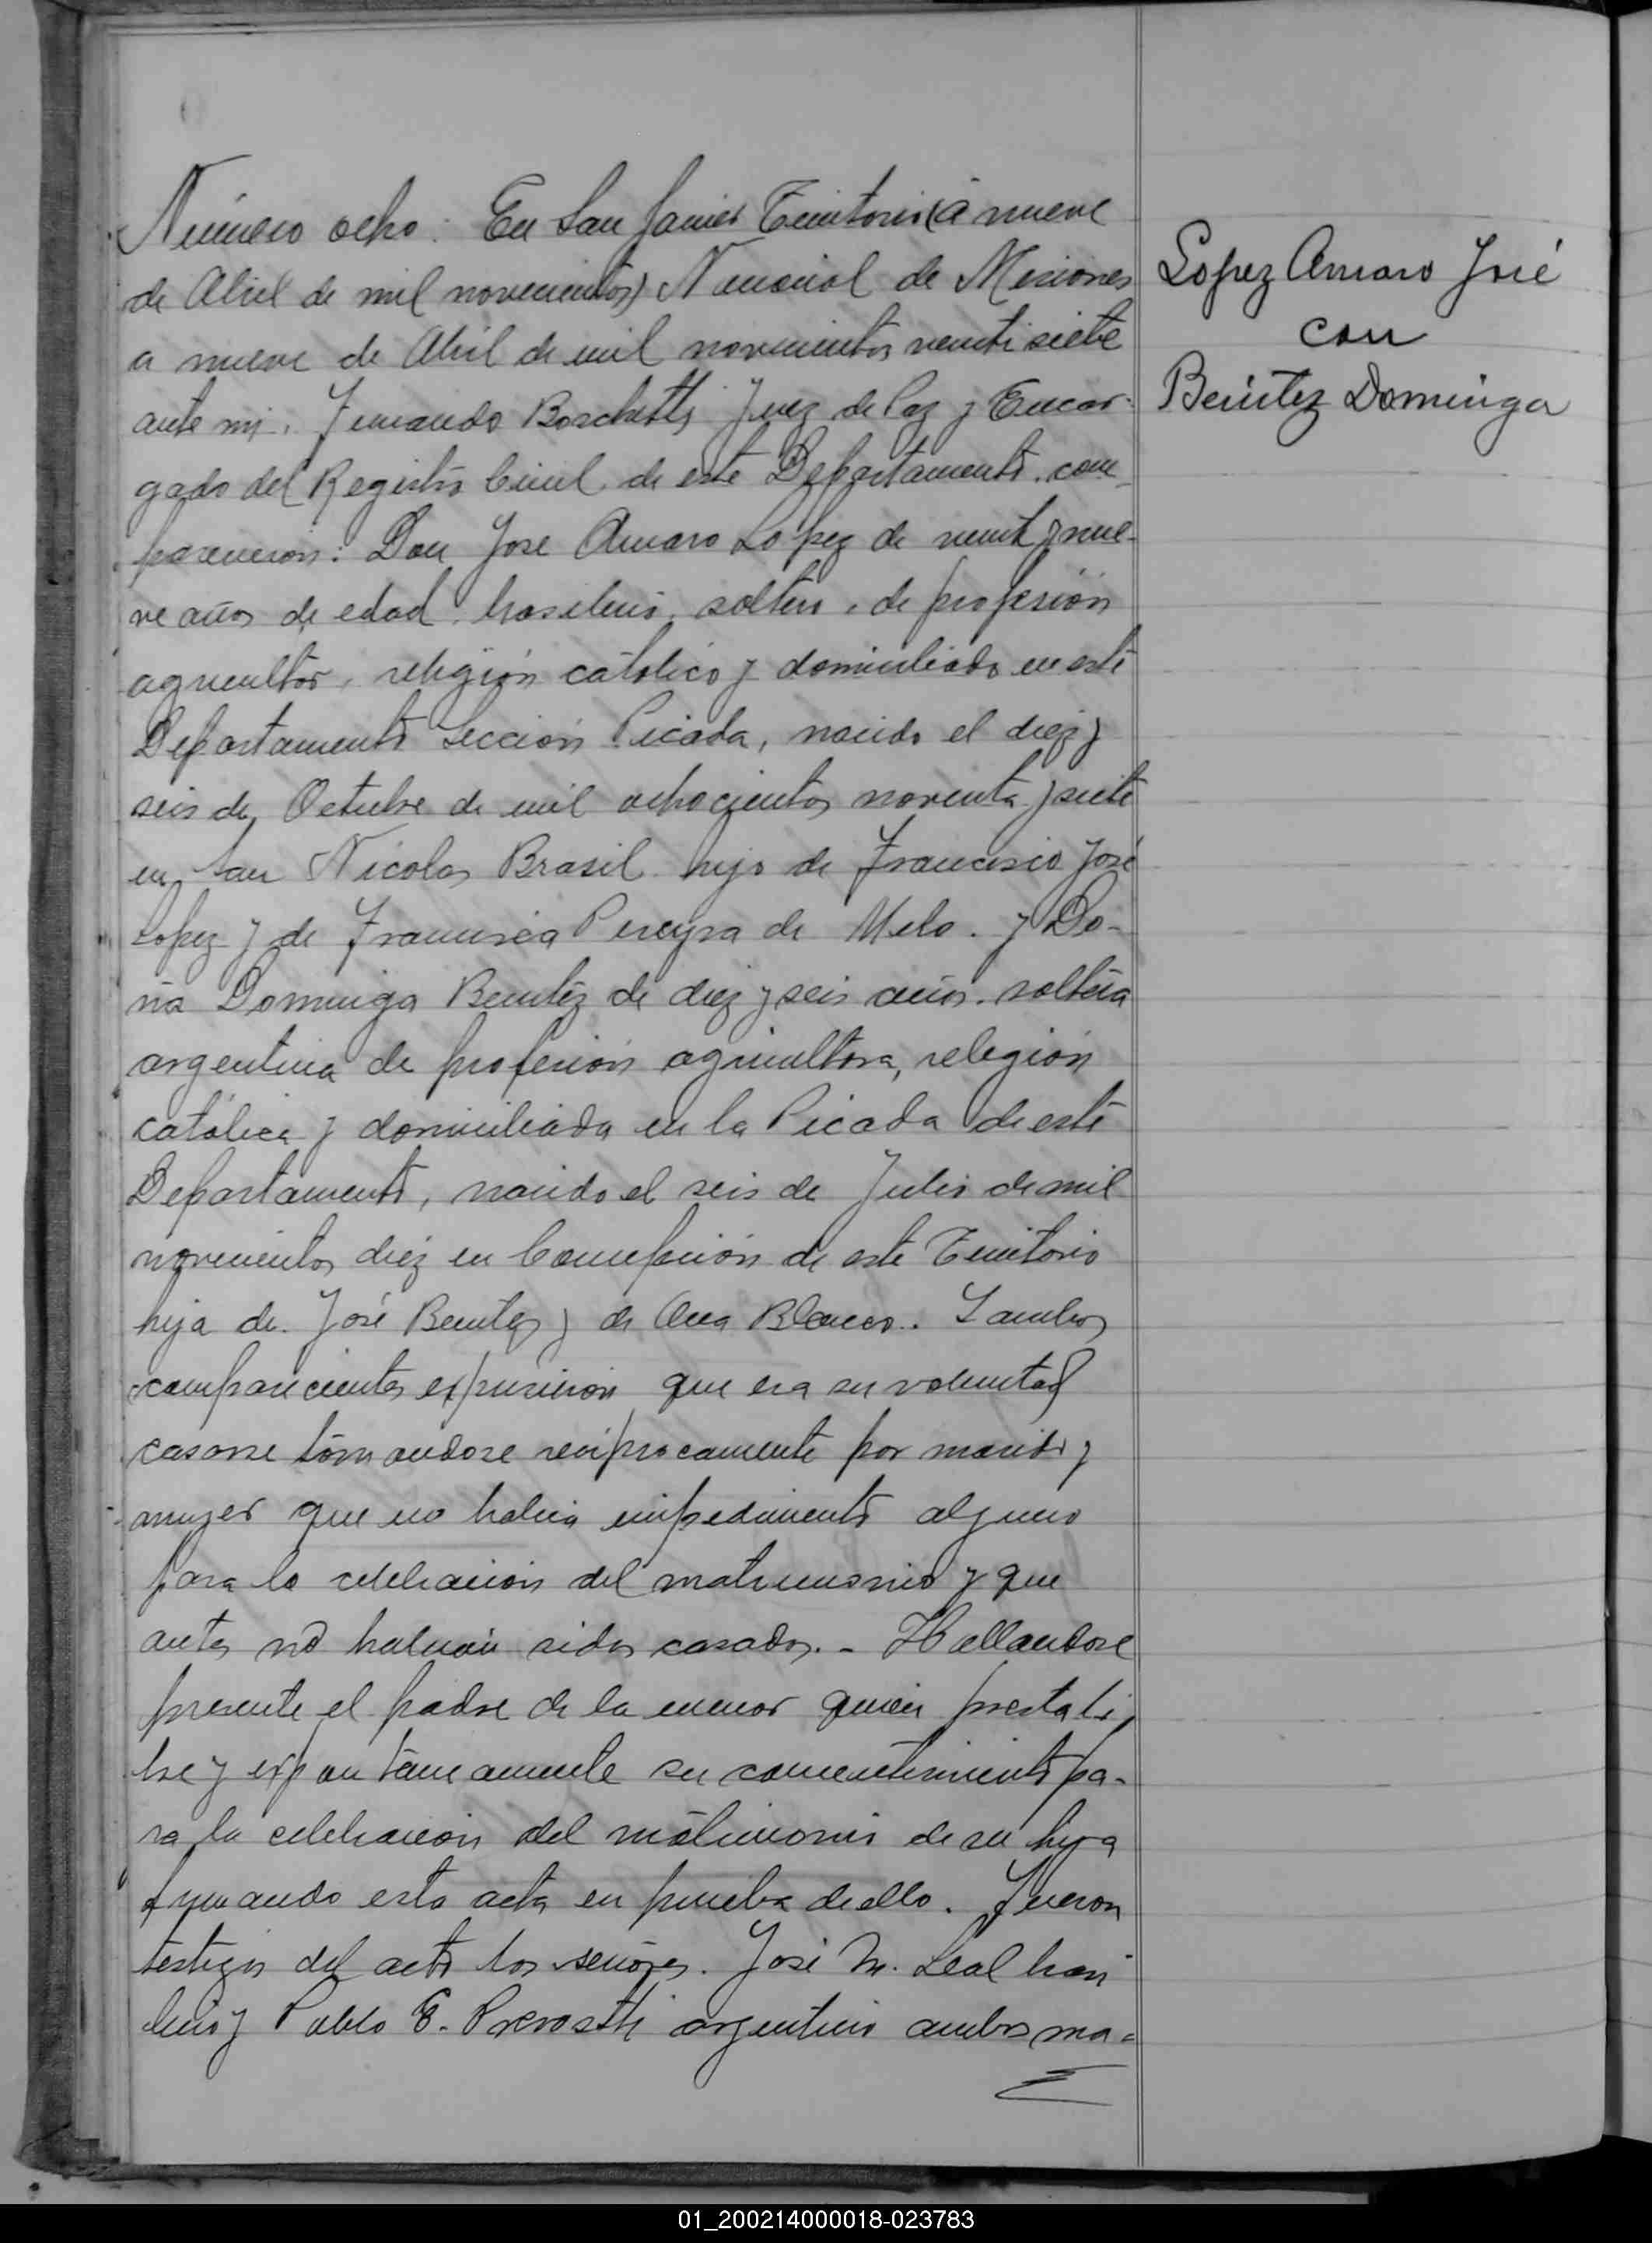 Número ocho: En San Javier Territorio (a nueve
de Abril de mil novecientos) Nacional de Misiones
a nueve de Abril de mil novecientos veinti siete
ante mi, Fernando Boschetti Juez de Paz y Encar-
gado del Registro Civil de este Departamento. com-
parecieron: Don Jose Amaro Lopez de veinte y nue-
ve años de edad, brasilero, soltero, de profesión
agricultor, religión católico y domiciliado en este
Departamento Sección Picada, nacido el diez y
seis de Octubre de mil ochocientos noventa y siete
en San Nicolas Brasil hijo de Francisco José
Lopez y de Francisca Pereyra de Melo. y Do-
ña Dominga Benitez de diez y seis años. soltera
argentina de profesión agricultora, religión
católica y domiciliada en la Picada de este
Departamento, nacido el seis de Julio de mil
novecientos diez en Concepción de este Territorio
hija de José Benitez y de Ana Blanco. Y ambos
comparecientes expusieron que era su voluntad
casarse tomandose reciprocamente por marido y
mujer que no habia impedimento alguno
para la celebración del matrimonio y que
antes no habian sidos casados. - Hallandose
presente el padre de la menor quien presta li-
bre y expontaneamente su consentimiento pa-
ra la celebración del matrimonio de su hija
firmando esta acta en prueba de ello. Fueron
testigos del acto los señores. José M. Leal brasi
lero y Pablo E. Prevostti argentino ambos ma-
Lopez Amaro José
con
Benitez Dominga
01_200214000018-023783